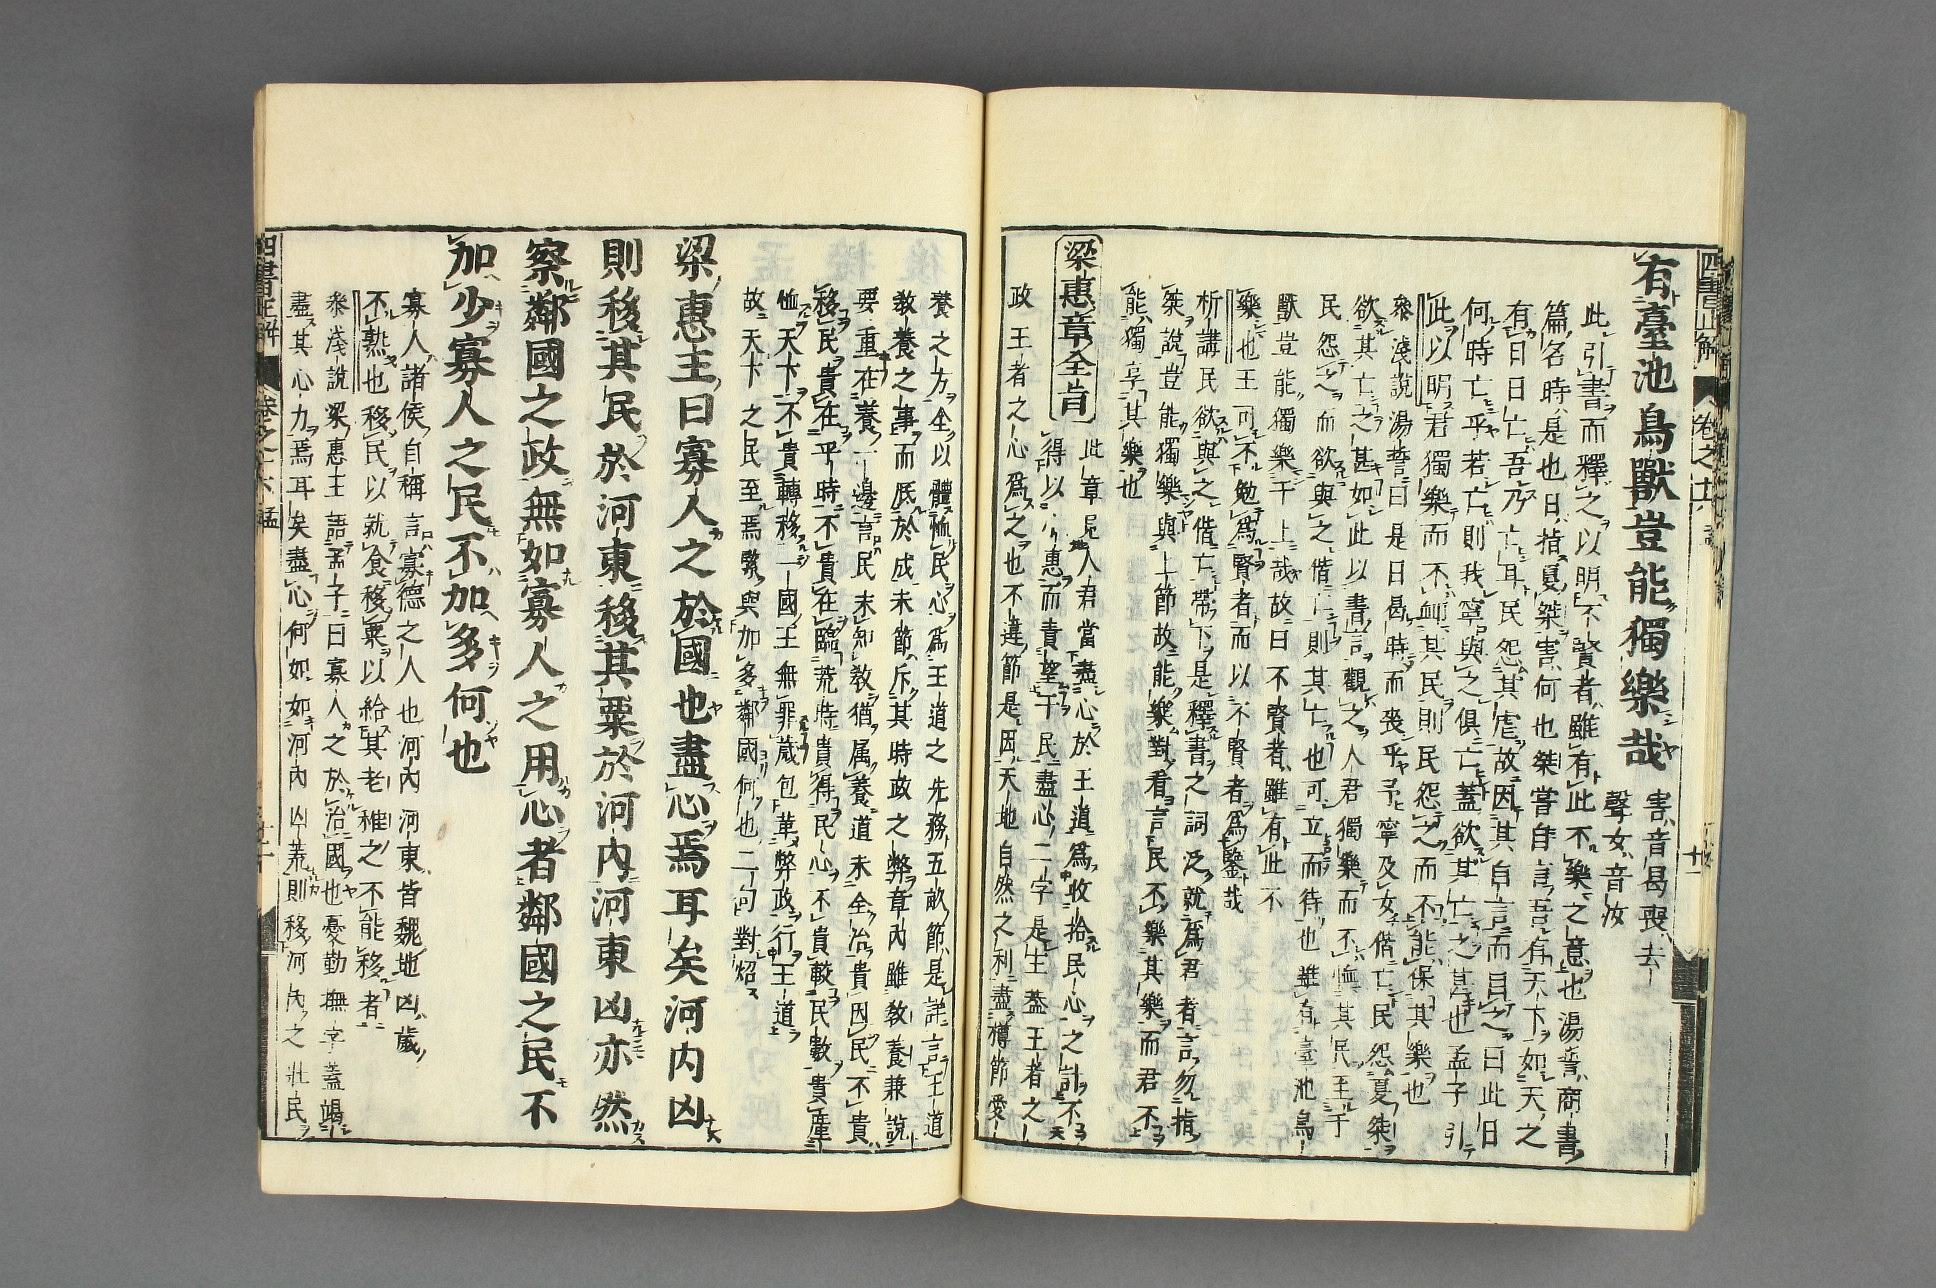 有臺池鳥獸豈能獨樂哉
害音曷喪去
聲女音汝
此引書而釋之以明不賢者雖有此不樂之意也湯誓商書
篇名時是也日指夏桀害何也桀嘗自言吾有天下如天之
有日日亡吾乃亡耳民怨其虐故因其自言而目之曰此日
何時亡乎若亡則我寧與之俱亡蓋欲其亡之甚也孟子引
此以明君獨樂而不恤其民則民怨之而不能保其樂也
參淺說湯誓曰是日曷時而喪乎予寧及女偕亡民怨夏桀
欲其亡之甚如此以書言觀之人君獨樂而不恤其民至于
民怨之而欲與之偕亡則其亡也可立而待也雖有臺池鳥
獸豈能獨樂于上哉故曰不賢者雖有此不
樂也王可不勉為賢者而以不賢者為鑒哉
析講民欲與之偕亡帶下是釋書之詞泛就為君者言勿指
桀說豈能獨樂與上節故能樂對看言民不樂其樂而君不
能獨享其樂也
梁惠章全旨
此章見人君當盡心於王道為收拾民心之計不
得以小惠而責望于民盡心二字是主蓋王者之
政王者之心為之也不違節是因天地自然之利盡樽節愛
養之方全以體恤民心為王道之先務五畝節是詳言王道
教養之事而底於成未節斥其時政之弊章內雖教養兼說
要重在養一邊言民未知教猶屬養道未全治貴因民不貴
移民貴在平時不貴在臨荒時貴得民心不貴較民數貴匡
恤天下不貴轉移一國王無罪歲包革弊政行王道
故天下之民至焉緊與加多鄰國何也二句對炤
梁惠王曰寡人之於國也盡心焉耳矣河內凶
則移其民於河東移其粟於河內河東凶亦然
察鄰國之政無如寡人之用心者鄰國之民不
加少寡人之民不加多何也
寡人諸侯自稱言寡德之人也河內河東皆魏地凶歲
不熟也移民以就食移粟以給其老稚之不能移者
參淺說梁惠王語孟子曰寡人之於治國也憂勤撫字蓋竭
盡其心力焉耳矣盡心何如如河內凶荒則移河內之壯民
四書正解
卷之十六